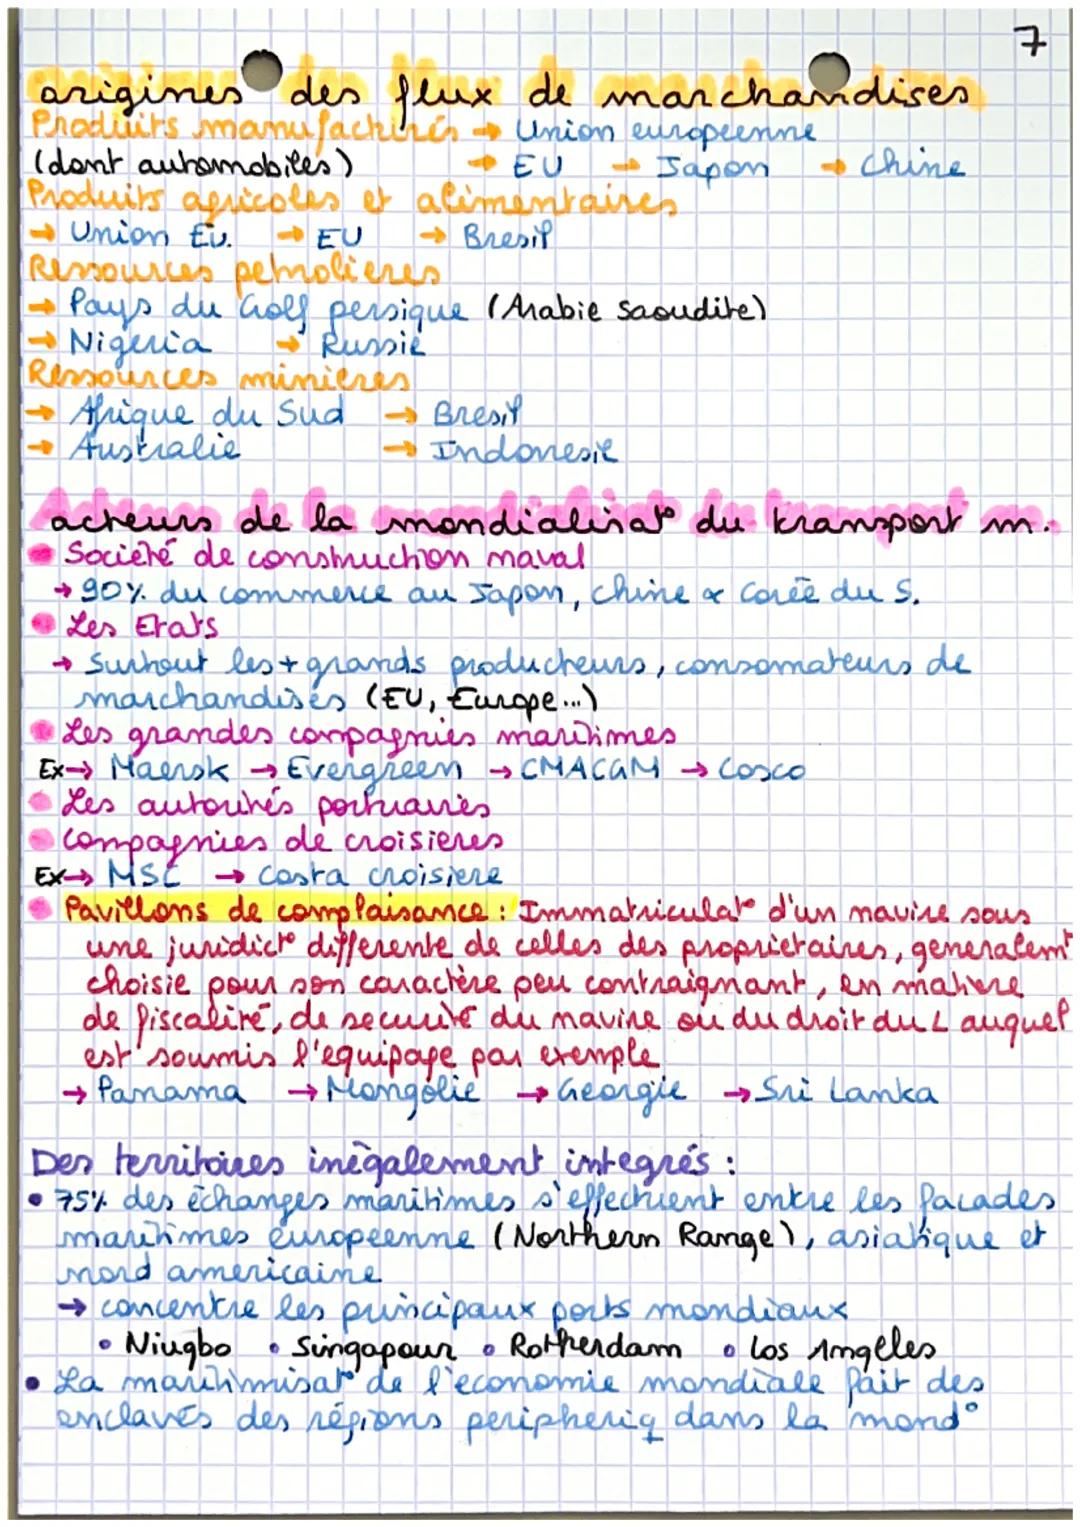 7
origines des flux de marchandises
Produits manufacturés → Union européenne
(dont automobiles) → EU → Japon → Chine
Produits agricoles et alimentaires
→ Union Eu. → EU → Bresil
Ressources petrolieres
→ Pays du Golf persique (Arabie Saoudite)
→ Nigeria → Russie
Ressources minieres
→ Afrique du Sud → Bresil
→ Australie → Indonesie
acteurs de la mondialisat° du transport m.
• Societé de construction naval
→ 90% du commerce au Japon, Chine & Corée du S.
• Les Etats
→ Surtout les + grands producteurs, consomateurs de
marchandises (EU, Europe...)
• Les grandes compagnies maritimes
Ex → Maersk → Evergreen → CMACGM → Cosco
• Les autorités portuaries
• Compagnies de croisieres
Ex → MSC → Costa croisiere
• Pavillons de complaisance : Immatriculat° d'un navire sous
une juridict° differente de celles des proprietaires, generalemt
choisie pour son caractère peu contraignant, en matiere
de fiscalité, de securité du navire ou du droit du L auquel
est soumis l'equipage par exemple
→ Panama → Mongolie → Georgie → Sri Lanka
Des territoires inégalement integrés :
• 75% des échanges maritimes s'effectuent entre les facades
maritimes europeenne (Northern Range), asiatique et
nord americaine
→ concentre les principaux ports mondiaux
• Niugbo • Singapour • Rotherdam • Los Angeles
• La maritimisat° de l'economie mondiale fait des
enclaves des régions peripheriq dans la mond°